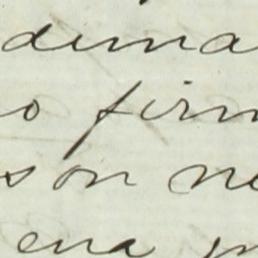 dema
o firm
son ne
ena